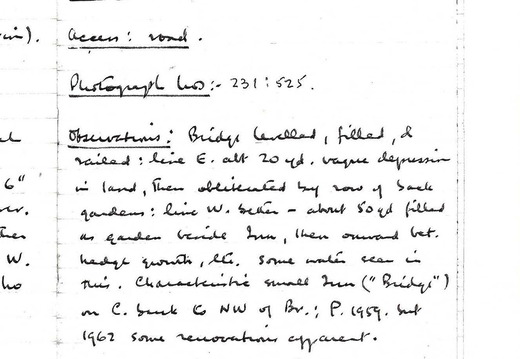 ain).
Access: road.
Photograph Nos:- 231: 525.
Observations: Bridge levelled, filled, &
railed: line E. abt 20 yd. vague depression
in land, then obliterated by row of back
6"
gardens: line W. better - about 50 yd filled
ver.
as garden beside Inn, then onward bet.
W.
hedge growth, etc. Some water seen in
this. Characteristic small Inn ("Bridge")
ho
on C. bank to NW of Br.; P. 1959. but
1962 some renovations apparent.